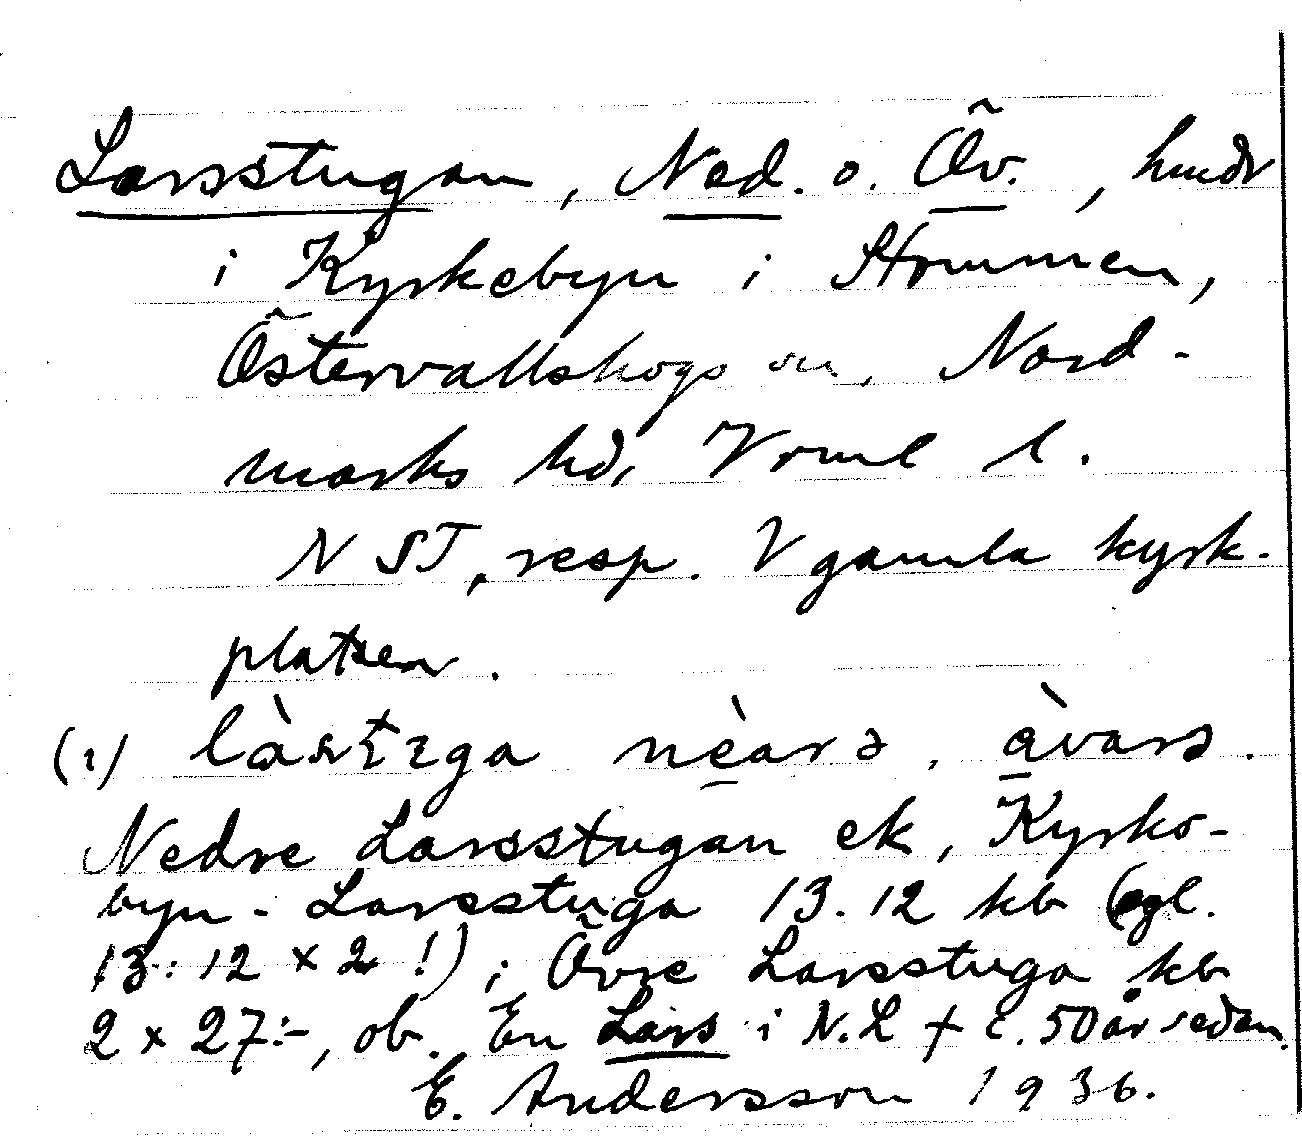 Larsstugan, Ned. o. Öv., hmdr
i Kyrkebyn i Stommen,
Östervallskogs sn, Nord-
marks hd, Vrml l.
N ST, resp. V gamla kyrk-
platsen.
(1) nèarə, àvarə.
Nedre Larsstugan ek, Kyrko-
byn - Larsstuga 13.12 kb (egl.
13:12 x 2!); Övre Larsstuga kb
2 x 27:-, ob. En Lars i N.L † c. 50 år sedan.
E. Andersson 1936.